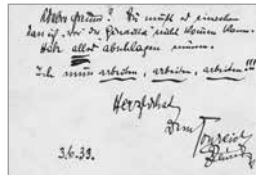 Lieber Freund! Du mußt es einsehen
daß ich vor der nicht kommen kann.
Habe alles abschlagen müssen.
Ich muss arbeiten, arbeiten, arbeiten!!!
Herzlichst
Dein